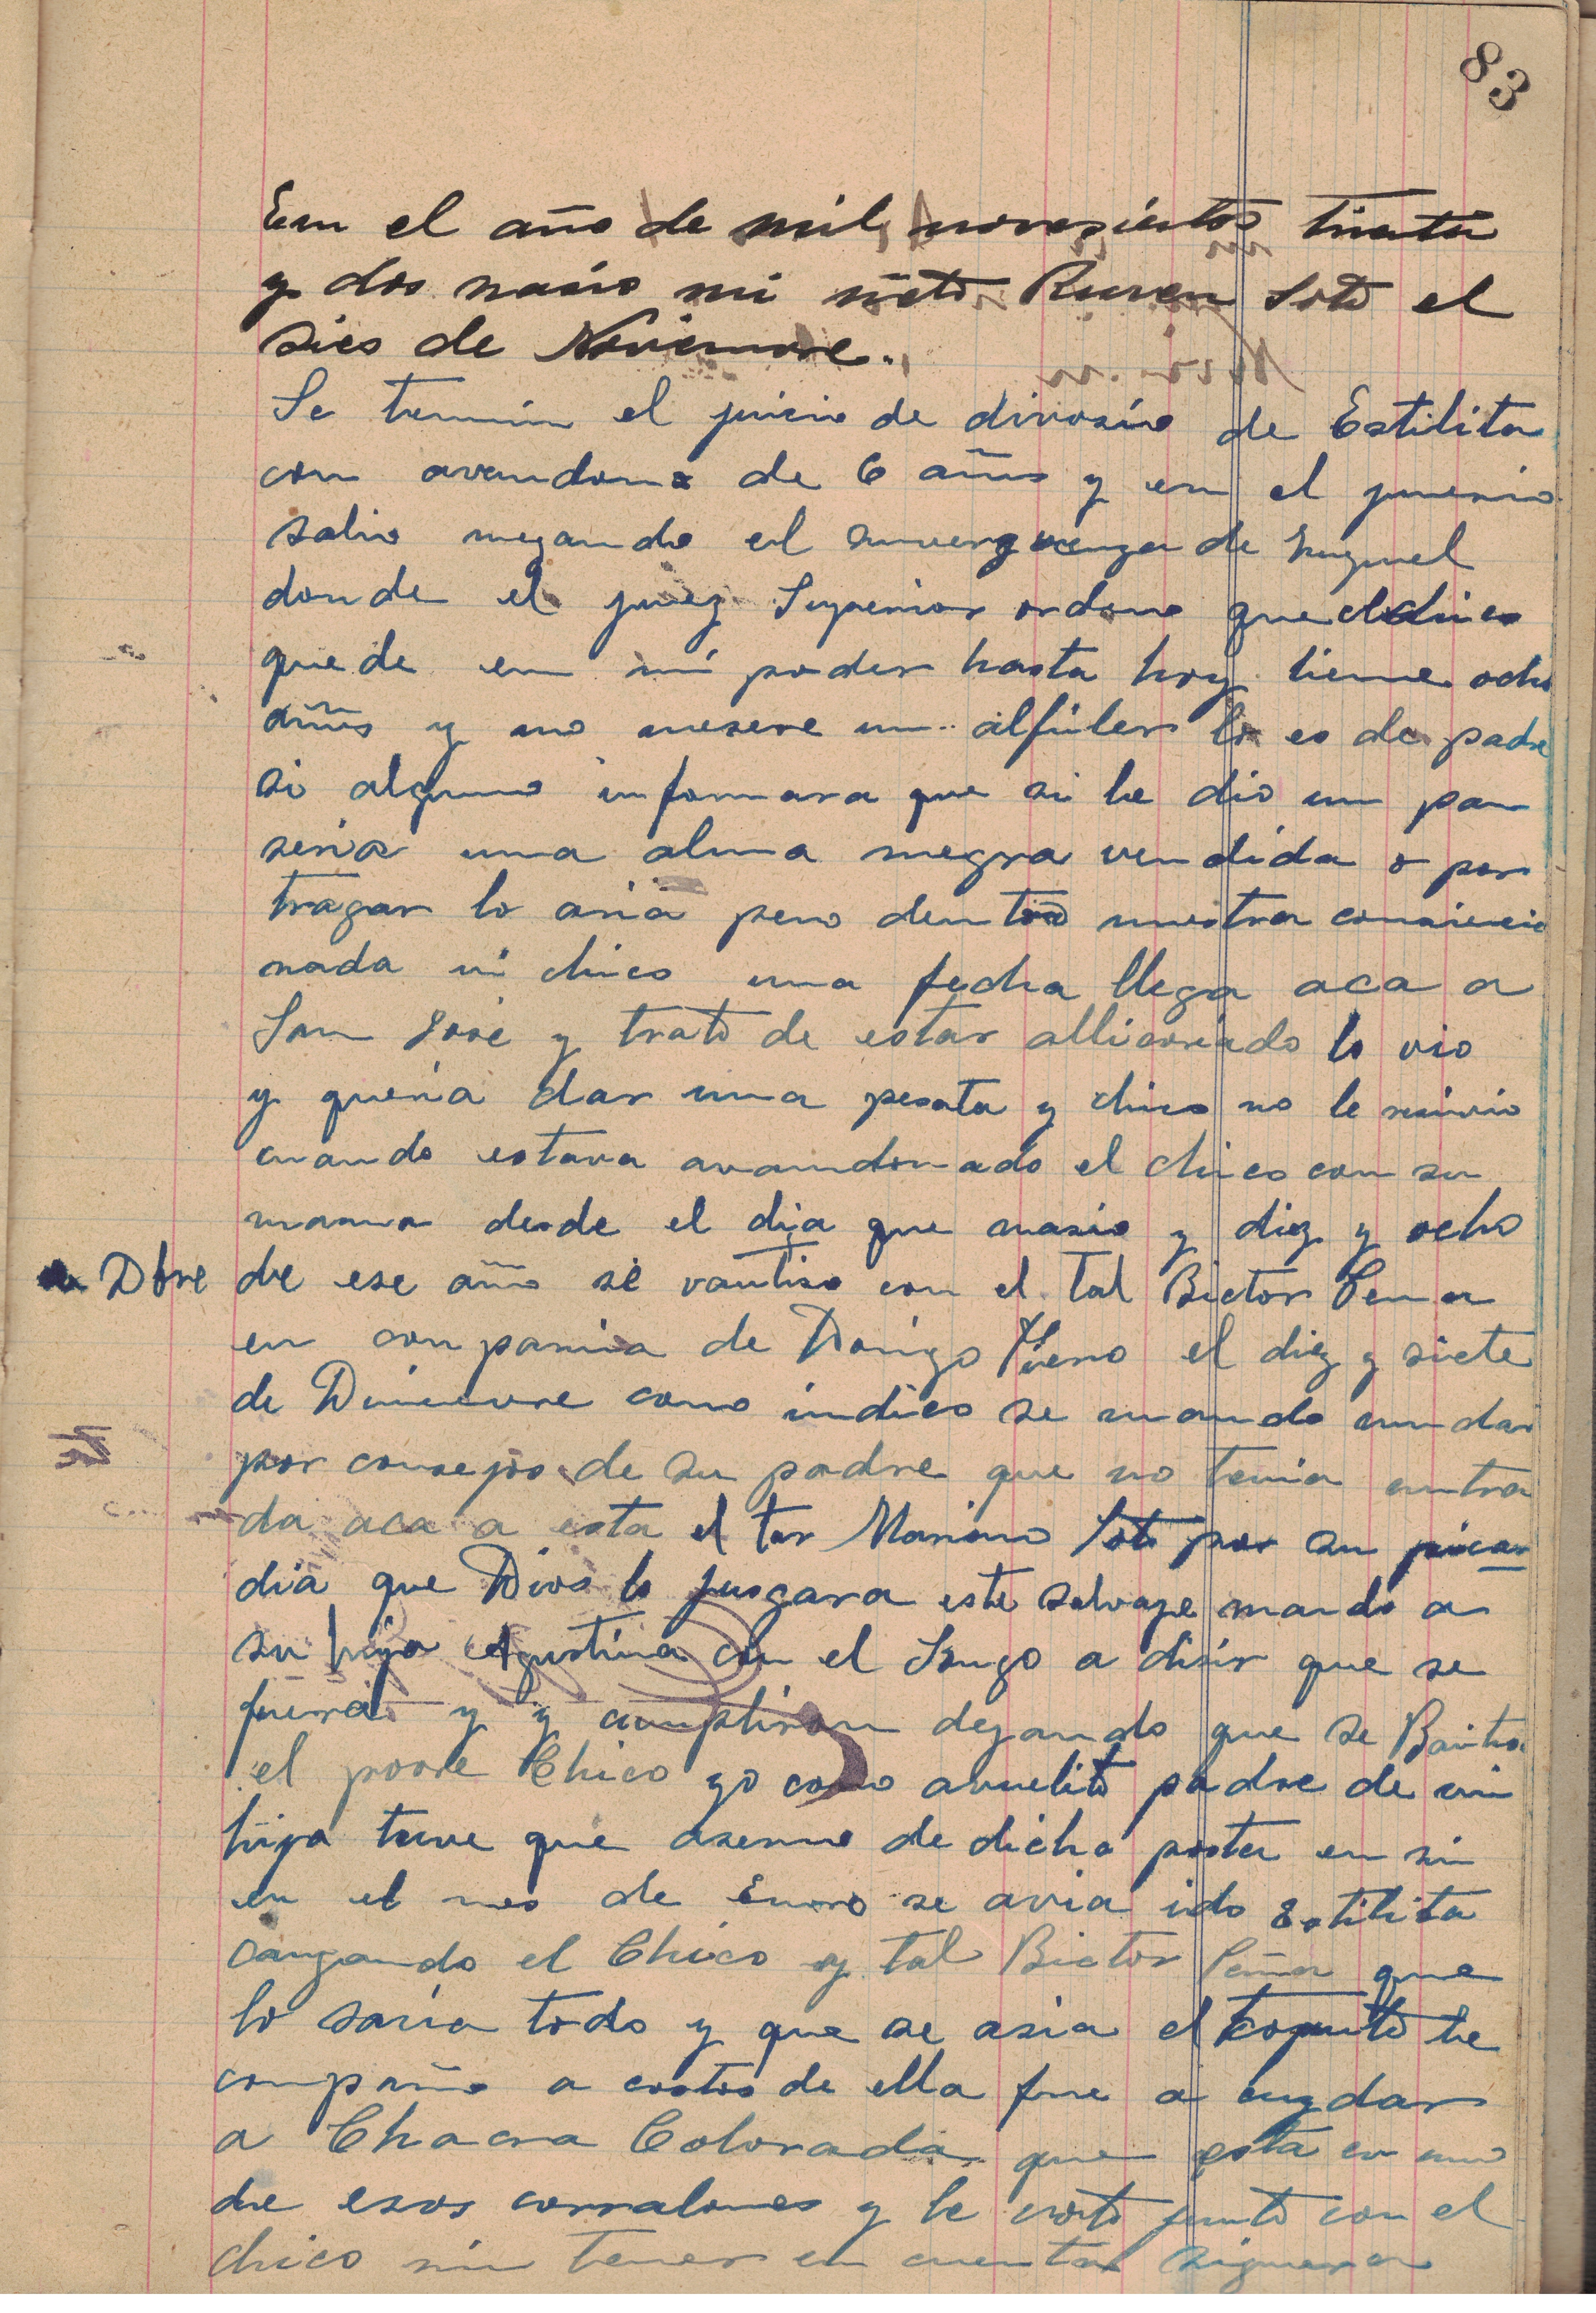 83
Em el año de mil novesientos trienta
y dos nasio mi nieto Ruven Soto el
sies de Noviemvre.
Se termin el juisio de divosio de Estilita
con avandono de 6 años y en el juisio
salio negando el sinverguenza de
donde el juez Superior ordeno que el chico
quede en mi poder hasta hoy tiene ocho
años y no meresre un alfiler lo es de padre
si alguno informara que si le dio un pan
seria una alma negra vendida o por
tragar lo aria pero dentro nuestra consiencia
nada mi chico una fecha llega aca a
San José y trato de estar lo vio
y queria dar una peseta y chico no le resivio
cuando estava avamdonado el chico con su
mama desde el dia que nasio y diez y ocho
Dbre de ese año se vautiso con el tal Bictor Pena
en compania de el diez y siete
de Disiemvre como indico se mando mudar
por consejos de su padre que no tenia entra
da aca a esta el tar Mariano Soto por su picar
dia que Dios lo jusgara este salvaje mando a
su hija Agustina con el a disir que se
fuera y y cumpliron dejando que se Bautisa
el povre Chico yo como avuelito padre de mi
hija tuve que aserme de dicha postu en sin
en el mes de Enero se avia ido Estilita
cargando el Chico y tal Bictor Peña que
lo savia todo y que se asia el le
compaño a costos de ella fue a cuydar
a Chacra Colorada que esta en uno
de esos corralones y le voto junto con el
chico sin tener en cuenta siquiera